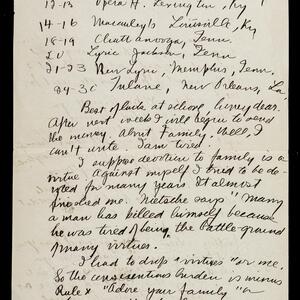 12-13 Opera H. Lexington, Ky
14-16 Macauley's Louisville, Ky
18-19 Chattanooga, Tenn.
20 Lyric Jackson, Tenn
21-23 New Lyric, Memphis, Tenn.
24-30 Tulane, New Orleans, La.
Best of luck at school, honey dear.
After next week I will begin to send
the money. About Family, well, I
can't write. I am tired.
I suppose devotion to family is a
virtue. Against myself I tried to be de-
voted for many years. It almost
finished me. Nietsche says "Many
a man has killed himself because
he was tired of being the battle-ground
of many virtues.
I had to drop a virtue or me.
So the conscientious burden is minus
Rule x "Adore your family" a